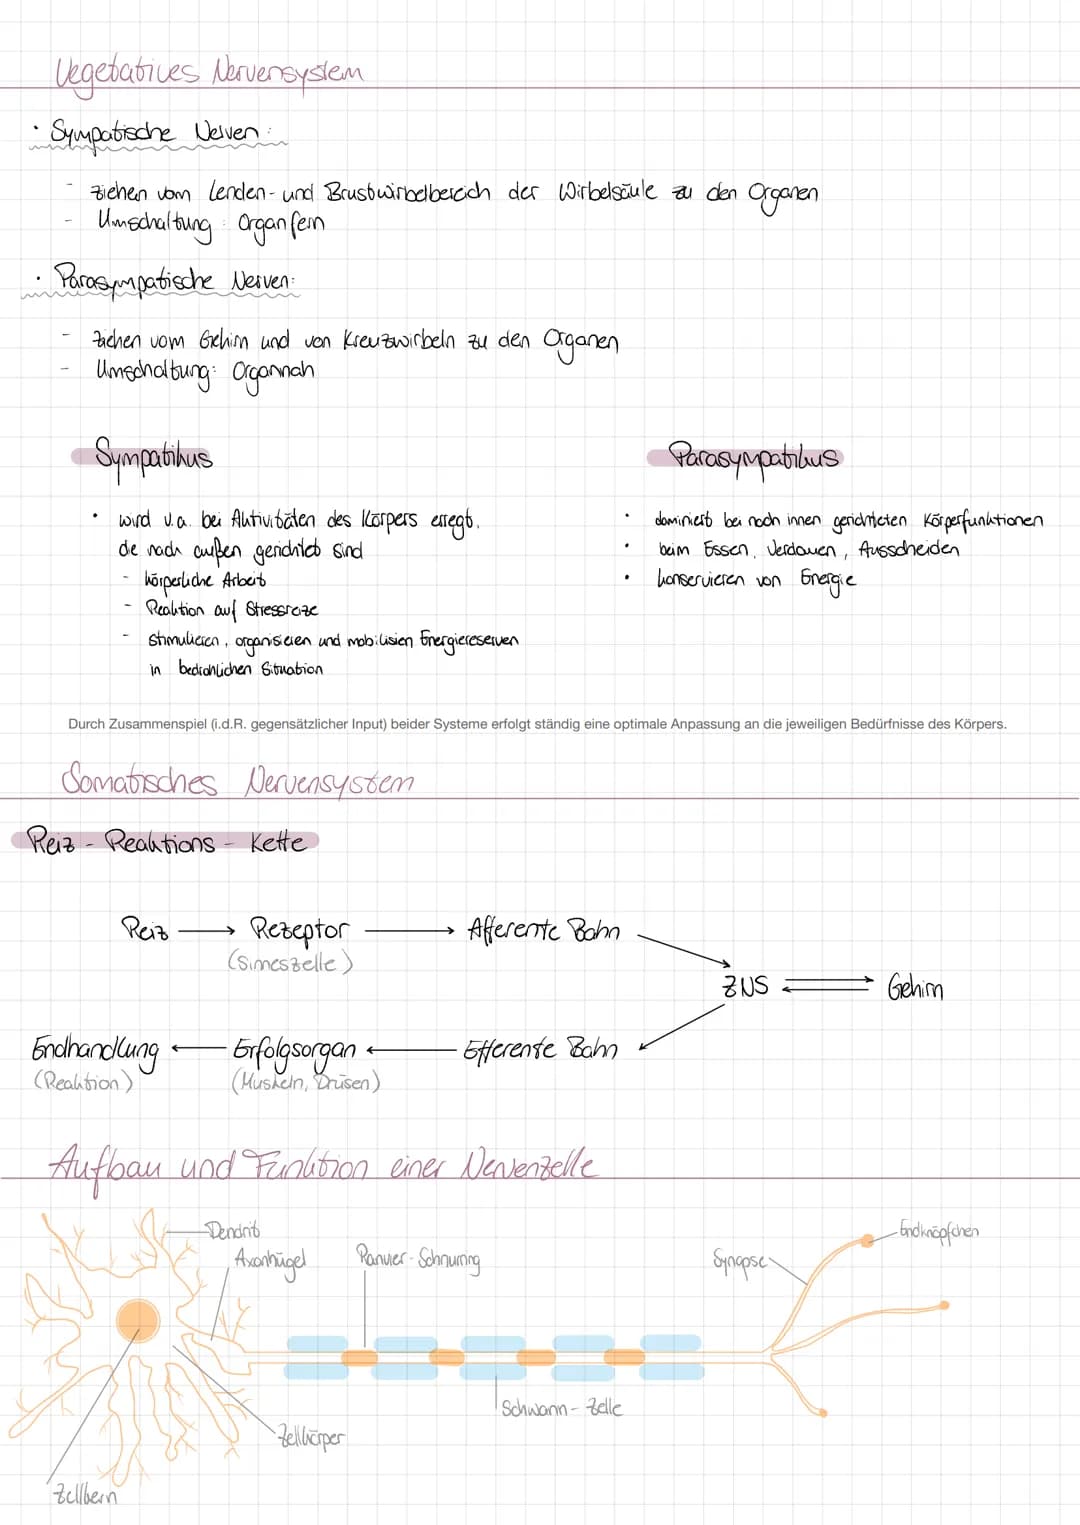 Vegetatives Nervensystem
· Sympatische Nerven:
- ziehen vom Lenden- und Brustwirbelbereich der Wirbelsäule zu den Organen
- Umschaltung: Organfern
· Parasympatische Nerven:
- ziehen vom Gehirn und von Kreuzwirbeln zu den Organen
- Umschaltung: Organnah
Sympatikus
• wird v.a. bei Aktivitäten des Körpers erregt,
die nach außen gerichtet sind
- körperliche Arbeit
- Reaktion auf Stressreize
- stimulieren, organisieren und mobilisien Energiereserven
in bedrohlichen Situation
Parasympatikus
• dominiert bei nach innen gerichteten Körperfunktionen
• beim Essen, Verdauen, Ausscheiden
• konservieren von Energie
Durch Zusammenspiel (i.d.R. gegensätzlicher Input) beider Systeme erfolgt ständig eine optimale Anpassung an die jeweiligen Bedürfnisse des Körpers.
Somatisches Nervensystem
Reiz - Reaktions - Kette
Reiz → Rezeptor → Afferente Bahn
(Sinneszelle)
ZNS ⇌ Gehirn
Endhandlung ← Erfolgsorgan ← Efferente Bahn
(Reaktion) (Muskeln, Drüsen)
Aufbau und Funktion einer Nervenzelle
Dendrit
Endknöpfchen
Axonhügel
Ranvier-Schnürring
Synapse
Schwann-Zelle
Zellkörper
Zellkern